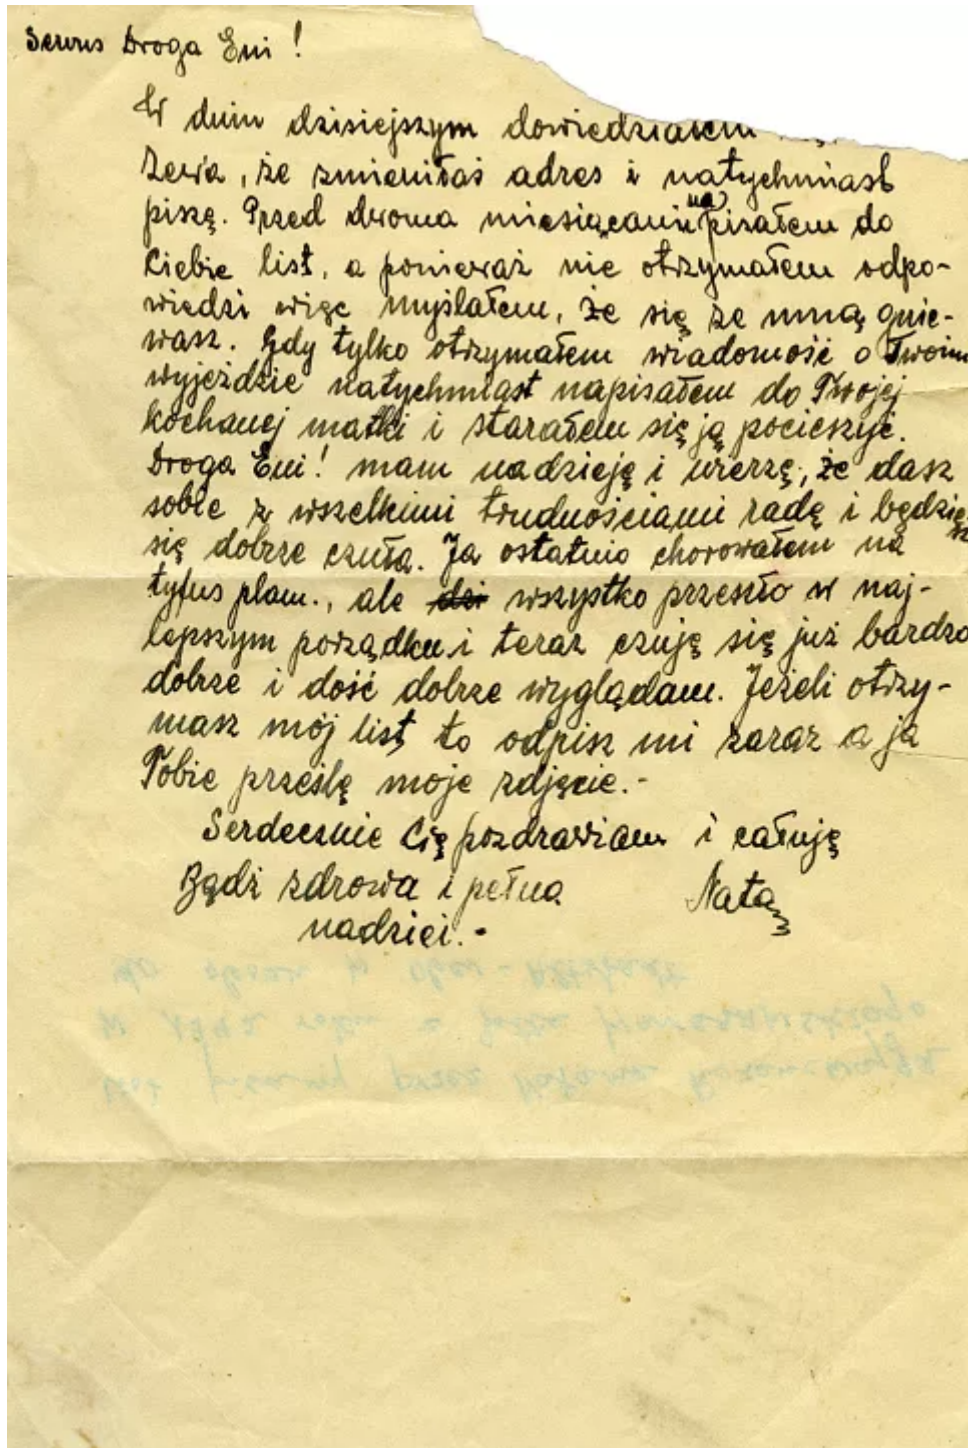 Serwus Droga Eni!
W dniu dzisiejszym dowiedziałem
że zmieniłaś adres i natychmiast
piszę. Przed dwoma miesiącami napisałem do
Ciebie list, a ponieważ nie otrzymałem odpo-
wiedzi więc myślałem, że się ze mną gnie-
wasz. Gdy tylko otrzymałem wiadomość o Twoim
wyjeździe natychmiast napisałem do Twojej
kochanej matki i starałem się ją pocieszyć.
Droga Eni! mam nadzieję i wierzę, że dasz
sobie z wszelkimi trudnościami radę i będziesz
się dobrze czuła. Ja ostatnio chorowałem na
tyfus plam., ale wszystko przeszło w naj-
lepszym porządku i teraz czuję się już bardzo
dobrze i dość dobrze wyglądam. Jeżeli otrzy-
masz mój list, to odpisz mi zaraz a ja
Tobie prześlę moje zdjęcie.-
Serdecznie Cię pozdrawiam i całuję
Bądź zdrowa i pełna Natan
nadziei.-